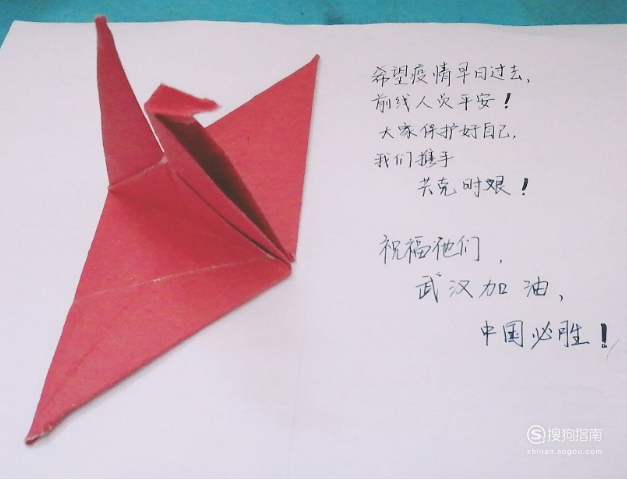 希望疫情早日过去,
前线人员平安!
大家保护好自己,
我们携手
共克时艰!
祝福他们,
武汉加油,
中国必胜!
搜狗指南
zhinan.sogou.com